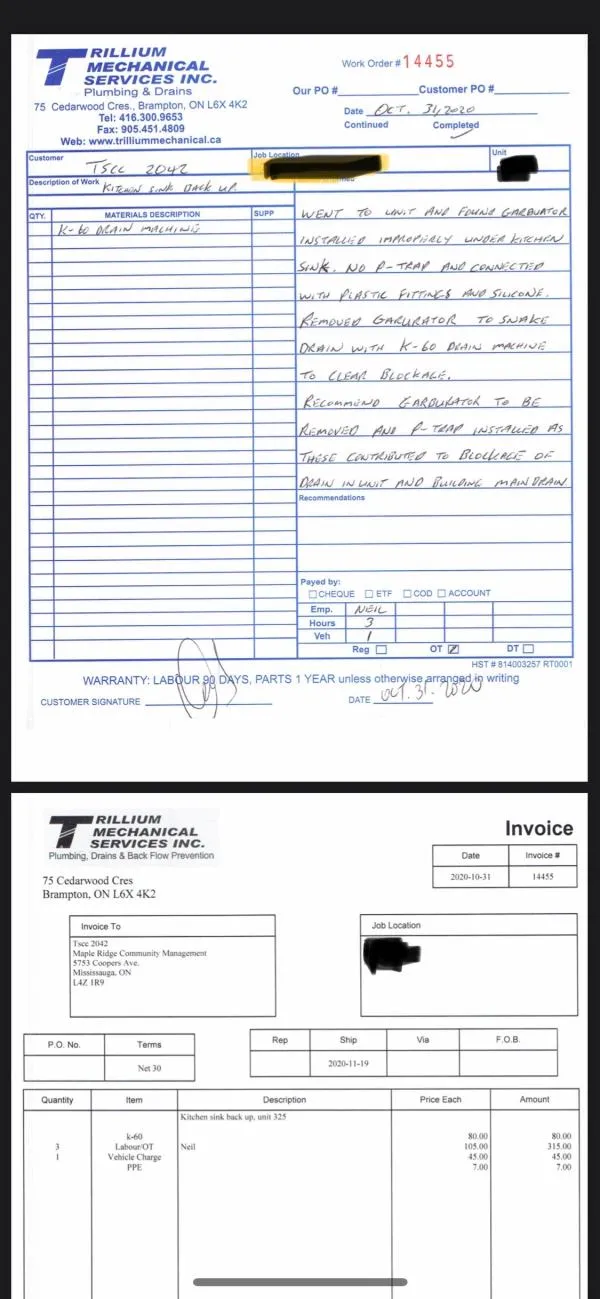 TRILLIUM
MECHANICAL
SERVICES INC.
Plumbing & Drains
75 Cedarwood Cres., Brampton, ON L6X 4K2
Tel: 416.300.9653
Fax: 905.451.4809
Web: www.trilliummechanical.ca
Work Order # 14455
Our PO # Customer PO #
Date OCT. 31, 2020
Continued Completed
Customer TSCC 2042
Job Location
Unit
Description of Work KITCHEN SINK BACK UP.
QTY. MATERIALS DESCRIPTION SUPP
K-60 DRAIN MACHINE
WENT TO UNIT AND FOUND GARBURATOR
INSTALLED IMPROPERLY UNDER KITCHEN
SINK. NO P-TRAP AND CONNECTED
WITH PLASTIC FITTINGS AND SILICONE.
REMOVED GARURATOR TO SNAKE
DRAIN WITH K-60 DRAIN MACHINE
TO CLEAR BLOCKAGE.
RECOMMEND GARBURATOR TO BE
REMOVED AND P-TRAP INSTALLED AS
THESE CONTRIBUTED TO BLOCKAGE OF
DRAIN IN UNIT AND BUILDING MAIN DRAIN
Recommendations
Payed by:
CHEQUE ETF COD ACCOUNT
Emp. NEIL
Hours 3
Veh 1
Reg OT DT
HST # 814003257 RT0001
WARRANTY: LABOUR 90 DAYS, PARTS 1 YEAR unless otherwise arranged in writing
CUSTOMER SIGNATURE DATE OCT. 31. 2020
TRILLIUM
MECHANICAL
SERVICES INC.
Plumbing, Drains & Back Flow Prevention
75 Cedarwood Cres
Brampton, ON L6X 4K2
Invoice
Date Invoice #
2020-10-31 14455
Invoice To
Tscc 2042
Maple Ridge Community Management
5753 Coopers Ave.
Mississauga, ON
L4Z 1R9
Job Location
P.O. No. Terms
Net 30
Rep Ship Via F.O.B.
2020-11-19
Quantity Item Description Price Each Amount
Kitchen sink back up, unit 325
k-60 80.00 80.00
3 Labour/OT Neil 105.00 315.00
1 Vehicle Charge 45.00 45.00
PPE 7.00 7.00